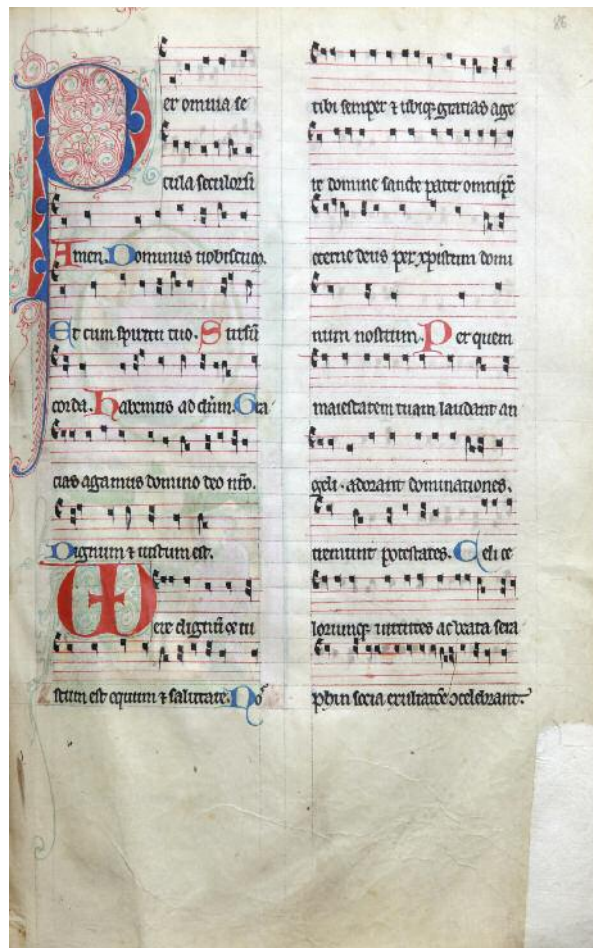 86
Per omnia se
cula seculorū
Amen. Dominus uobiscum.
Et cum spiritu tuo. Sursū
corda. Habemus ad dn̄m. Gra
cias agamus domino deo nr̄o.
Dignum ⁊ iustum est.
Vere dignū ⁊ iu
stum est equum ⁊ salutare. No
tibi semper ⁊ ubiqꝫ gratias age
re domine sancte pater omnipn̄s
eterne deus per xp̄istum domi
num nostrum. Per quem
maiestatem tuam laudant an
geli. adorant dominationes.
tremunt potestates. Celi ce
lorumqꝫ uirtutes ac beata sera
phin socia exultatōe ꝯcelebrant.